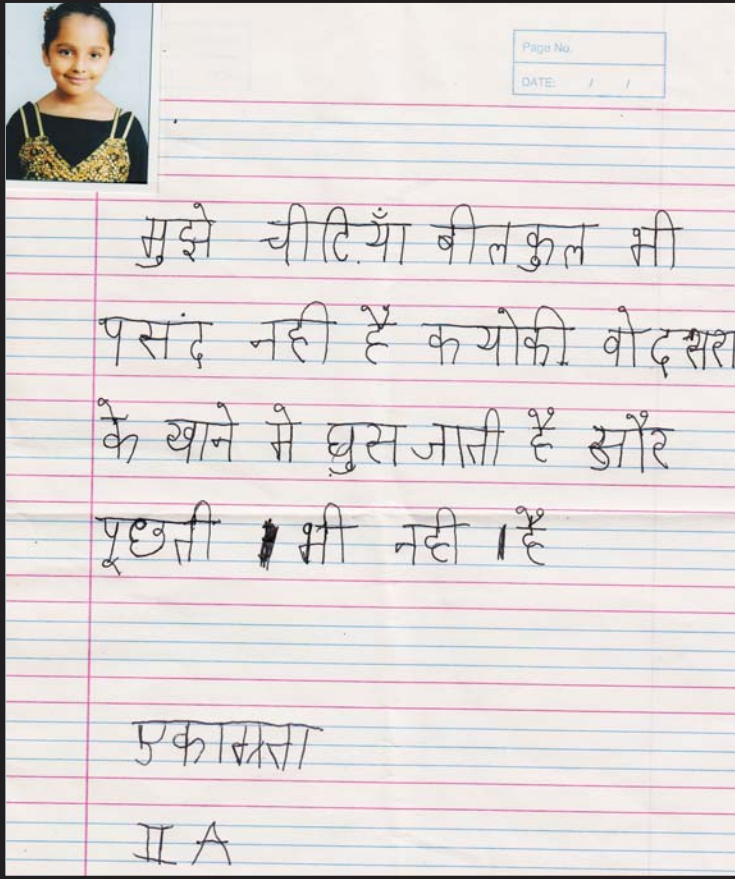 Page No.
DATE: / /
मुझे चीटियाँ बीलकुल भी
पसंद नही है कयोकी वो दसरा
के खाने मे घुस जाती है और
पूछती भी नही है
एकाग्रता
II A